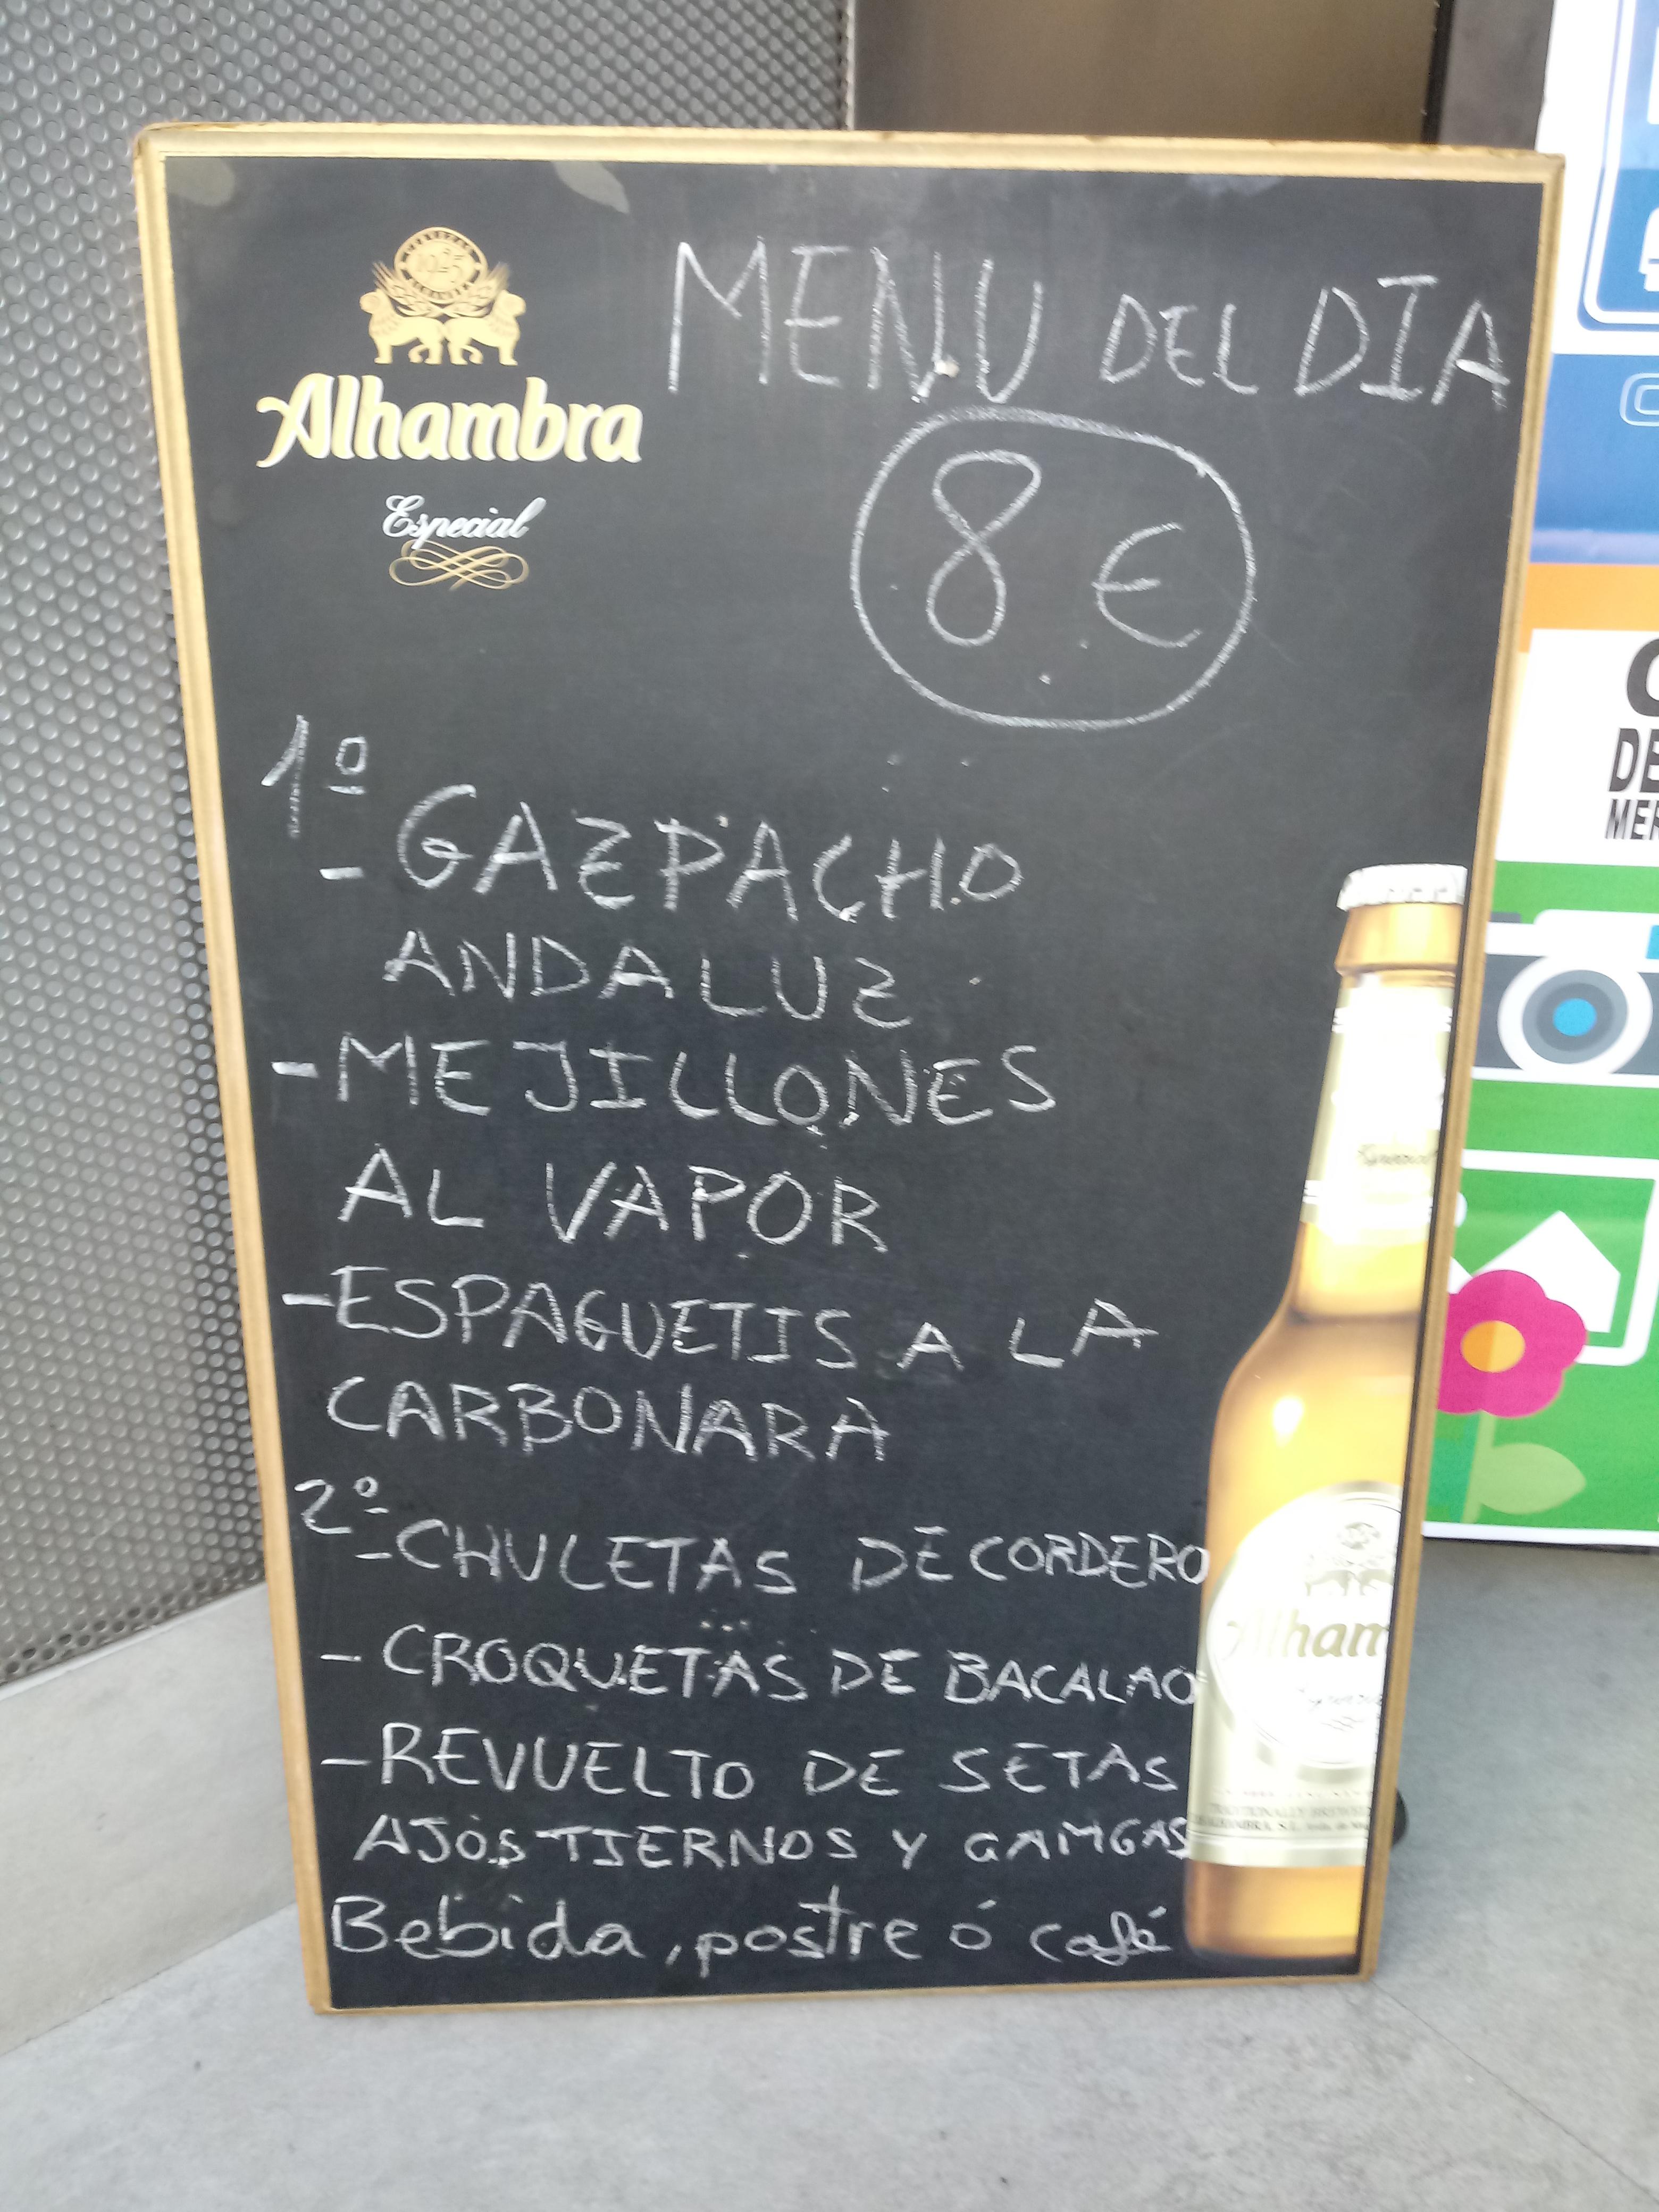 1925
Alhambra
Especial
MENU DEL DIA
8 €
1º
- GAZPACHO
ANDALUZ
- MEJILLONES
AL VAPOR
- ESPAGUETIS A LA
CARBONARA
2º
- CHULETAS DE CORDERO
- CROQUETAS DE BACALAO
- REVUELTO DE SETAS
AJOS TIERNOS Y GAMGAS
Bebida, postre ó café
Alham
TRADITIONALLY BREWED
DE
MER